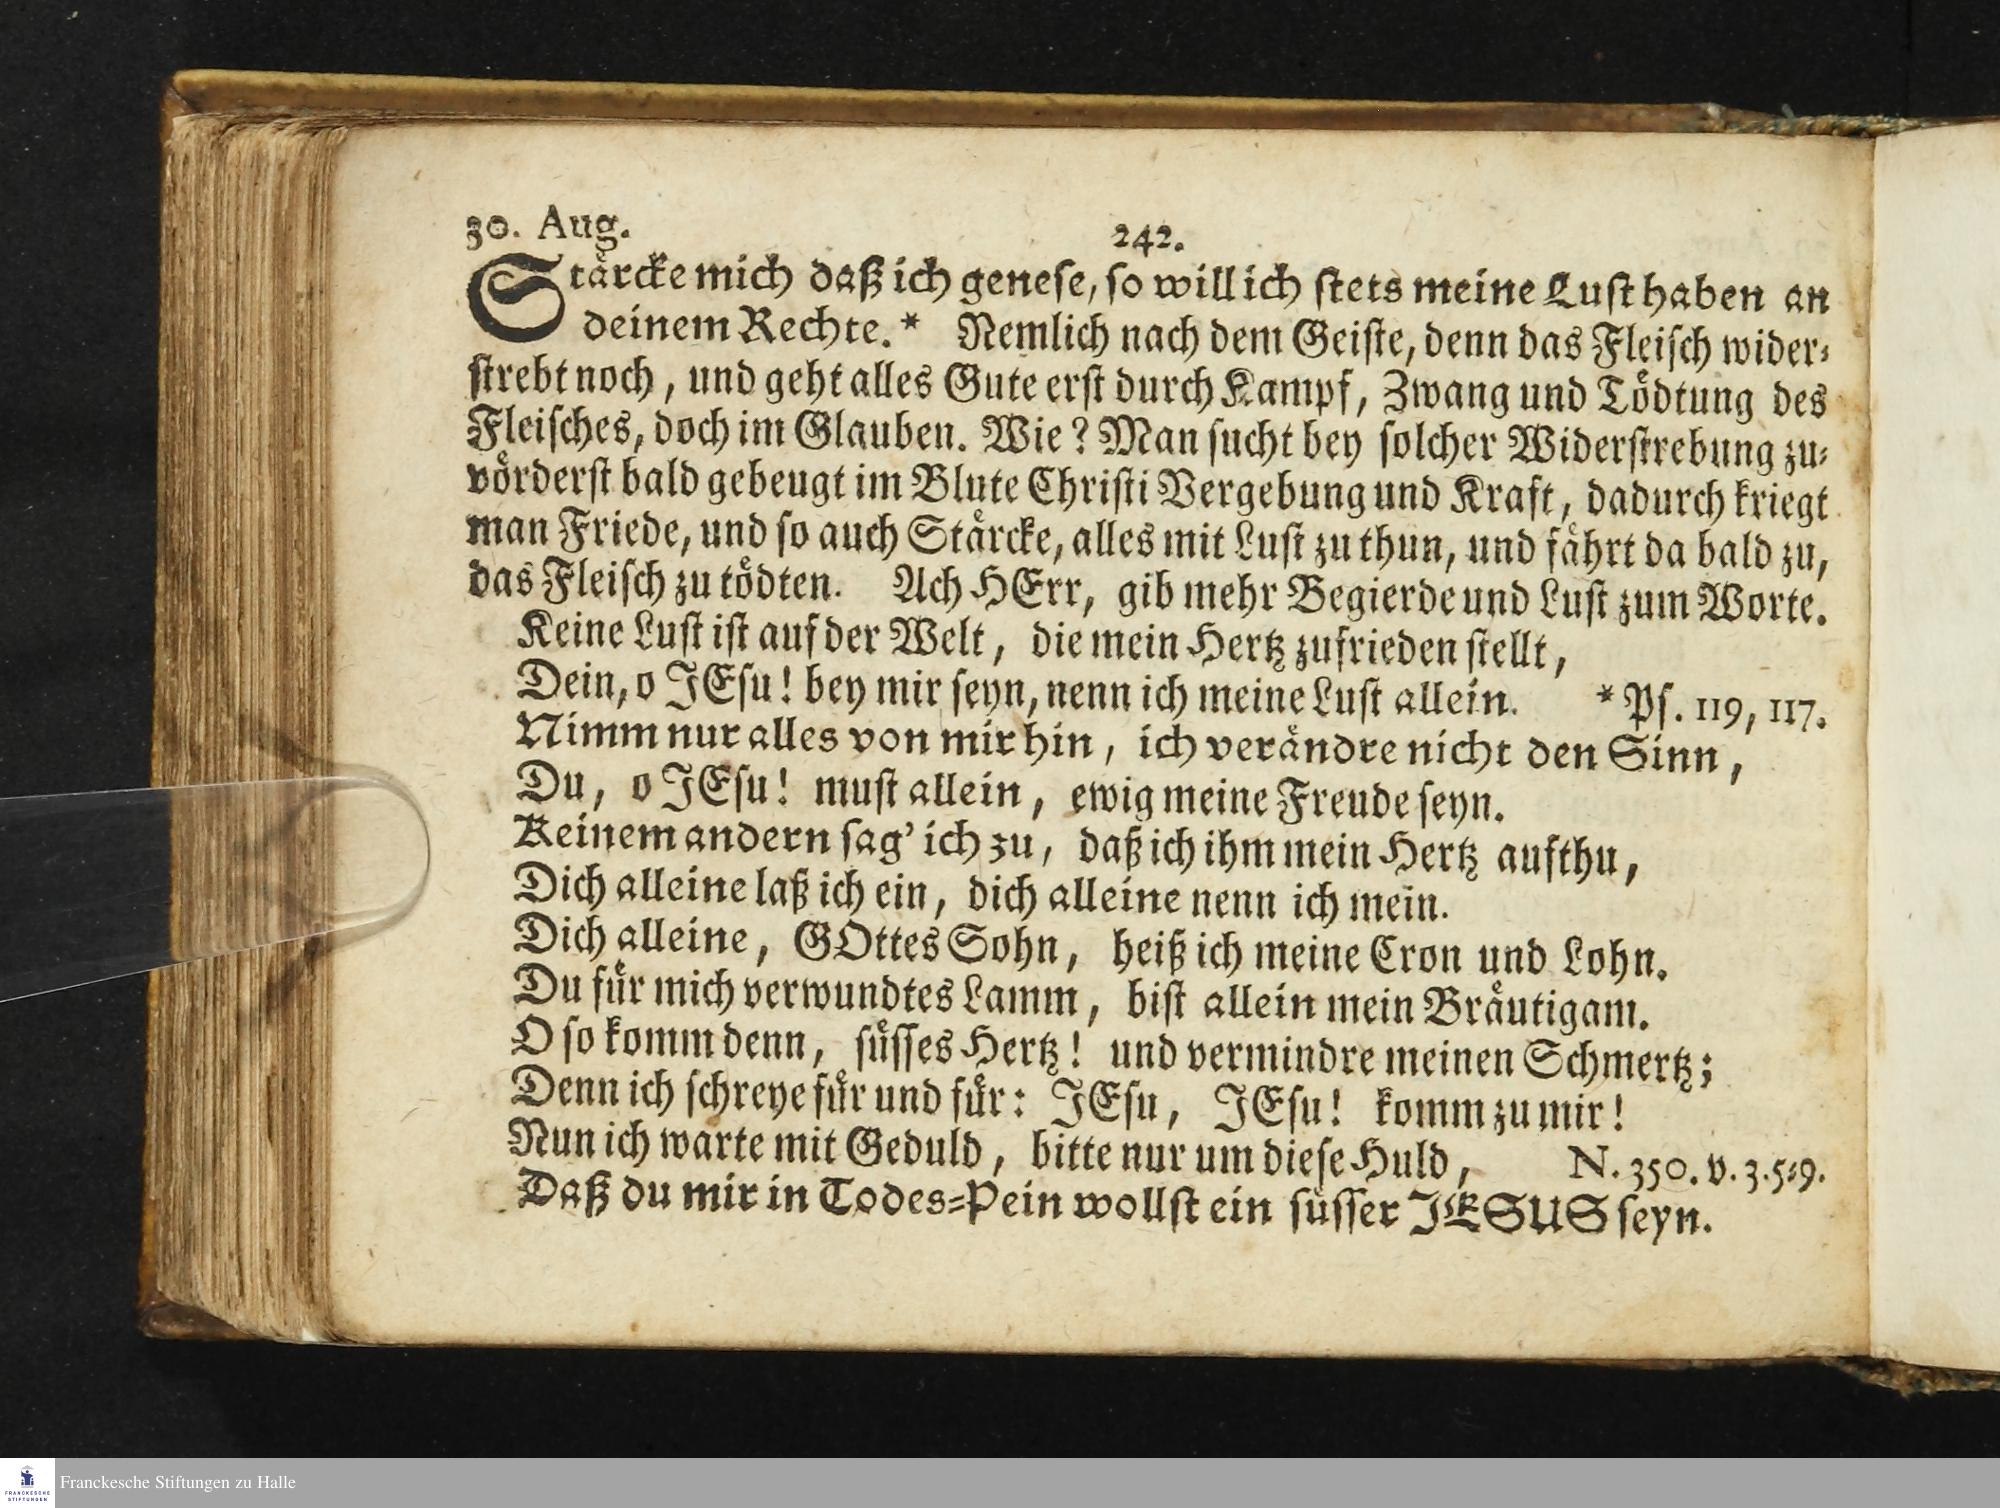 30. Aug.
242.
Stärcke mich daß ich genese, so will ich stets meine Lust haben an
deinem Rechte.* Nemlich nach dem Geiste, denn das Fleisch wider-
strebt noch, und geht alles Gute erst durch Kampf, Zwang und Tödtung des
Fleisches, doch im Glauben. Wie? Man sucht bey solcher Widerstrebung zu-
vörderst bald gebeugt im Blute Christi Vergebung und Kraft, dadurch kriegt
man Friede, und so auch Stärcke, alles mit Lust zu thun, und fährt da bald zu,
das Fleisch zu tödten. Ach HErr, gib mehr Begierde und Lust zum Worte.
Keine Lust ist auf der Welt, die mein Hertz zufrieden stellt,
Dein, o JEsu! bey mir seyn, nenn ich meine Lust allein. *Ps. 119, 117.
Nimm nur alles von mir hin, ich verändre nicht den Sinn,
Du, o JEsu! must allein, ewig meine Freude seyn.
Keinem andern sag' ich zu, daß ich ihm mein Hertz aufthu,
Dich alleine laß ich ein, dich alleine nenn ich mein.
Dich alleine, GOttes Sohn, heiß ich meine Cron und Lohn.
Du für mich verwundtes Lamm, bist allein mein Bräutigam.
O so komm denn, süsses Hertz! und vermindre meinen Schmertz;
Denn ich schreye für und für: JEsu, JEsu! komm zu mir!
Nun ich warte mit Geduld, bitte nur um diese Huld, N. 350. v. 3. 5-9.
Daß du mir in Todes-Pein wollst ein süsser JESUS seyn.
FRANCKESCHE
STIFTUNGEN
Franckesche Stiftungen zu Halle